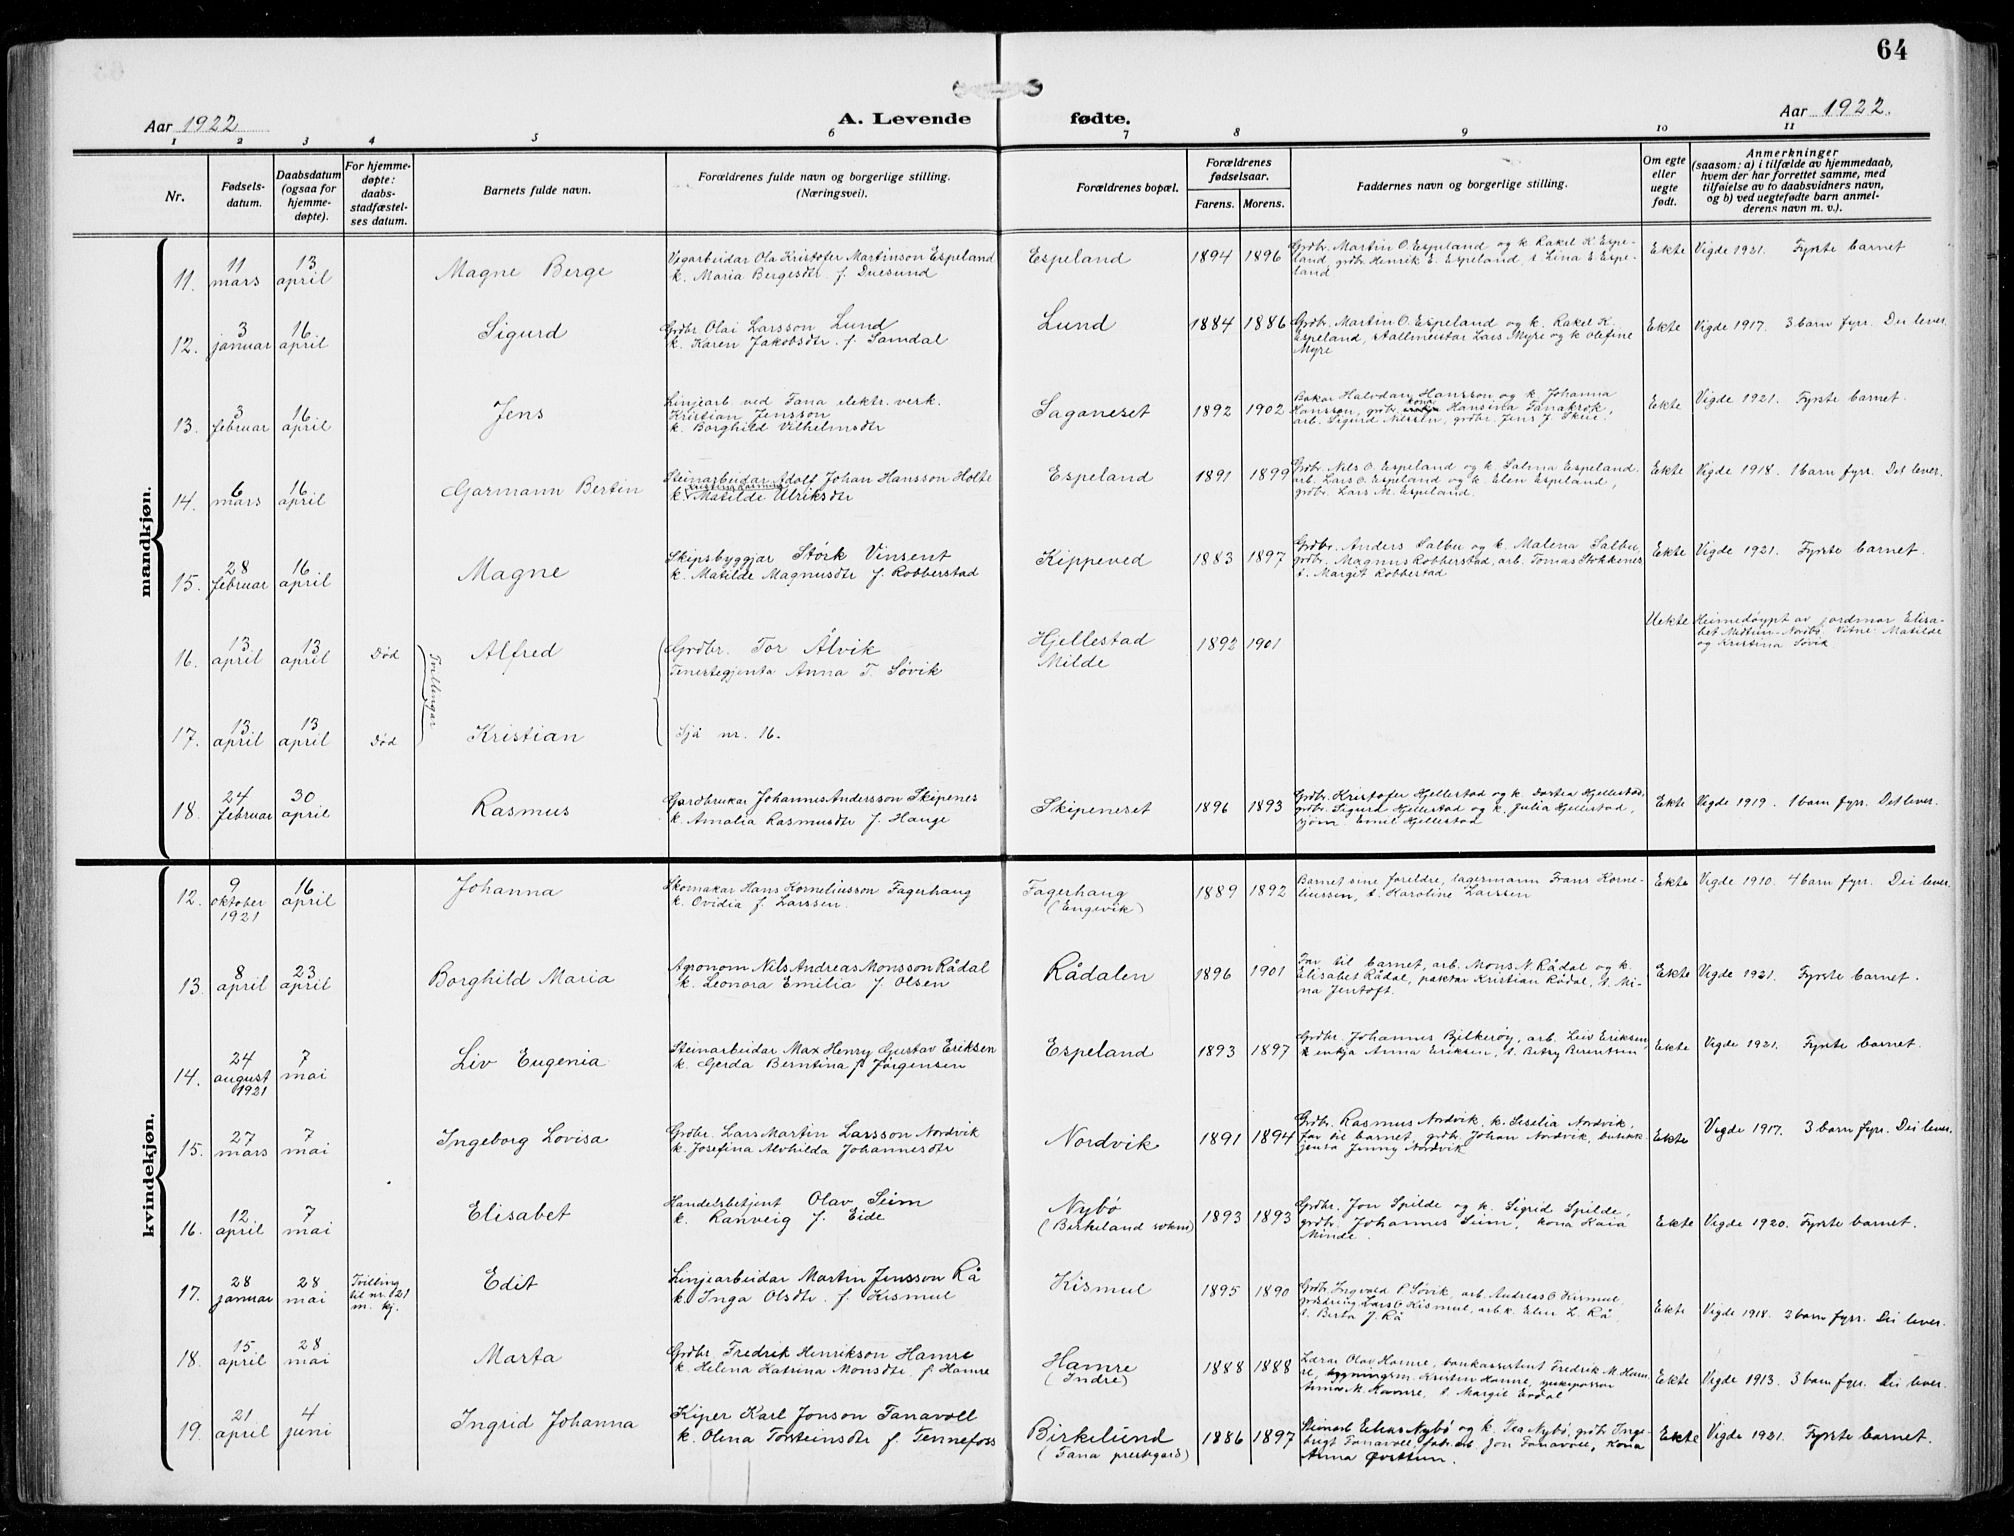 64
Aar 1922
A. Levende fødte.
Aar 1922.
1 2 3 4 5 6 7 8 9 10 11
Nr.
Fødsels-
datum.
Daabsdatum
(ogsaa for
hjemme-
døpte).
For hjemme-
døpte:
daabs-
stadfæstel-
ses datum.
Barnets fulde navn.
Forældrenes fulde navn og borgerlige stilling.
(Næringsvei).
Forældrenes bopæl.
Forældrenes
fødselsaar.
Farens. Morens.
Faddernes navn og borgerlige stilling.
Om egte
eller
uegte
født.
Anmerkninger
(saasom: a) i tilfælde av hjemmedaab,
hvem der har forrettet samme, med
tilføielse av to daabsvidners navn,
og b) ved uegtefødte barn anmel-
derens navn m. v.).
mandkjøn.
11.
11
mars
13
april
Magne Berge
Vegarbeidar Ola Kristofer Martinson Espeland
k. Maria Bergesdtr f. Duesund
Espeland
1894 1896
Grdbr. Martin O. Espeland og k. Rakel K. Espe-
land, grdbr. Henrik E. Espeland, t. Lina E. Espe-
land
Ekte
Vigde 1921. Fyrste barnet
12.
3
januar
16
april
Sigurd
Grdbr. Olai Larsson Lund
k. Karen Jakobsdtr. f. Samdal
Lund
1884 1886
Grdbr. Martin O. Espeland og k. Rakel K.
Espeland, Stallmeistar Lars Myre og k. Olefine
Myre
Ekte
Vigde 1917. 3 barn fyrr. Dei lever.
13.
3
februar
16
april
Jens
Linjearb. ved Fana elektr. verk.
Kristian Jensson
k. Borghild Vilhelmsdtr
Saganeset
1892 1902
Bakar Halvdan Hansson og k. Johanna
Hansson, grdbr. kona Hansina Fanakrok,
arb. Sigurd Nilssen, grdbr. Jens J. Skeie.
Ekte
Vigde 1921. Fyrste barnet.
14.
6
mars
16
april
Garmann Bertin
Steinarbeidar Adolf Johan Hansson Holte
k. Matilde Ulriksdtr
Espeland
1891 1899
Grdbr. Nils O. Espeland og k. Salma Espeland.
arb. Lars O. Espeland og k. Elen Espeland,
grdbr. Lars M. Espeland.
Ekte
Vigde 1918. 1 barn fyrr. Det lever.
15.
28
februar
16
april
Magne
Skipsbyggjar Størk Vinsent
k. Matilde Magnusdtr f. Robberstad
Kippeved
1883 1897
Grdbr. Anders Salbu og k. Malena Salbu,
grdbr. Magnus Robberstad, arb. Tomas Stokkenes,
t. Margit Robberstad
Ekte
Vigde 1921. Fyrste barnet.
16.
13
april
13
april
Død
Tvillingar
Alfred
Grdbr. Tor Ålvik
Tenestegjenta Anna T. Søvik
Hjellestad
Milde
1892 1901
Uekte
Heimedøypt av jordmor Elisa-
bet Midttun-Nordbø. Vitne: Matilde
og Kristina Søvik
17.
13
april
13
april
Død
Kristian
Sjå nr. 16.
18.
24
februar
30
april
Rasmus
Gardbrukar Johannes Andersson Skipenes
k. Amalia Rasmusdtr f. Hauge
Skipeneset
1896 1893
Grdbr. Kristofer Hjellestad og k. Dortea Hjellestad,
grdbr. Sigurd Hjellestad og k. Julia Hjellestad,
sjøm. Emil Hjellestad
Ekte
Vigde 1919. 1 barn fyrr. Det lever.
kvindekjøn.
12.
9
oktober
1921
16
april
Johanna
Skomakar Hans Korneliusson Fagerhaug
k. Ovidia f. Larssen.
Fagerhaug
(Engevik)
1889 1892
Barnet sine foreldre, lagermann Frans Korne-
liussen, t. Karoline Larssen
Ekte
Vigde 1910. 4 barn fyrr. Dei lever.
13.
8
april
23
april
Borghild Maria
Agronom Nils Andreas Monsson Rådal
k. Leonora Emilia f. Olsen
Rådalen
1896 1901
Far til barnet, arb. Mons N. Rådal og k.
Elisabet Rådal, paktar Kristian Rådal, t. Mi-
na Jentoft.
Ekte
Vigde 1921. Fyrste barnet.
14.
24
august
1921
7
mai
Liv Eugenia
Steinarbeidar Max Henry Gustav Eriksen
k. Gerda Berntina f. Jørgensen
Espeland
1893 1897
Grdbr. Johannes Bjelkerøy, arb. Leiv Eriksen,
enkja Anna Eriksen, t. Betsy Berentsen
Ekte
Vigde 1921. Fyrste barnet.
15.
27
mars
7
mai
Ingeborg Lovisa
Grdbr. Lars Martin Larsson Nordvik
k. Josefina Alvhilda Johannesdtr
Nordvik
1891 1894
Grdbr. Rasmus Nordvik, k. Seselia Nordvik,
far til barnet, grdbr. Johan Nordvik, butikk-
gjenta Jenny Nordvik
Ekte
Vigde 1917. 3 barn fyrr. Dei lever.
16.
12
april
7
mai
Elisabet
Handelsbetjent Olav Seim
k. Ranveig f. Eide
Nybø
(Birkeland sokn)
1893 1893
Grdbr. Jon Spilde og k. Sigrid Spilde,
grdbr. Johannes Seim, kona Kaia
Minde.
Ekte
Vigde 1920. Fyrste barnet.
17.
28
januar
28
mai
Tvilling
til nr. 21
m. kj.
Edit
Linjearbeidar Martin Jensson Rå
k. Inga Olsdtr. f. Kismul
Kismul
1895 1890
Grdbr. Ingvald P. Søvik, arb. Andreas O. Kismul,
Lars O. Kismul, arb. k. Elen L. Rå,
t. Berta J. Rå
Ekte
Vigde 1918. 2 barn fyrr. Dei lever.
18.
15
april
28
mai
Marta
Grdbr. Fredrik Henrikson Hamre
k. Helena Katrina Monsdtr. f. Hamre
Hamre
(Indre)
1888 1888
Lærar Olav Hamre, bankassistent Fredrik M. Ham-
re, bygningsm. Kristen Hamre,
Anna M. Hamre, t. Margit Evdal
Ekte
Vigde 1913. 3 barn fyrr. Dei lever.
19.
21
april
4
juni
Ingrid Johanna
Kiper Karl Jonson Fanavoll
k. Olena Torsteinsdtr f. Tennefoss
Birkelund
(Fana prestegard)
1886 1897
Steinarb. Elias Nybø og k. Tea Nybø, grdbr. Inge-
brigt Fanavoll, fabr.arb. Jon Fanavoll, kona
Anna Øvsttun.
Ekte
Vigde 1921. Fyrste barnet.